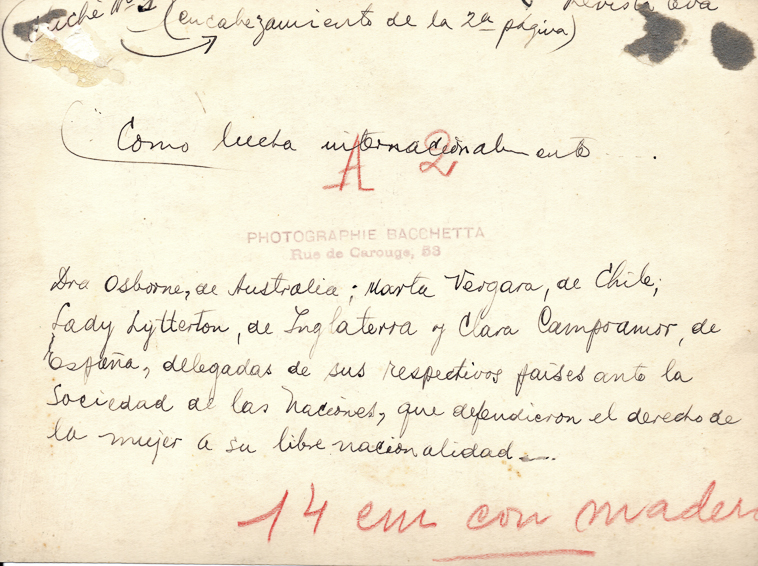 Revista Eva
(Cliché Nº 1 (encabezamiento de la 2ª página)
Como lucha internacionalmente
A 2
PHOTOGRAPHIE BACCHETTA
Rue de Carouge, 53
Dra Osborne, de Australia; Marta Vergara, de Chile;
Lady Lytterton, de Inglaterra y Clara Campoamor, de
España, delegadas de sus respectivos países ante la
Sociedad de las Naciones, que defendieron el derecho de
la mujer a su libre nacionalidad —.
14 cm con madera